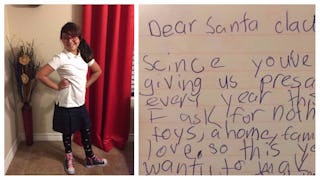 Dear Santa clau
Scince youve
giving us presa
every year this
I ask for noth
toys, a home, fam
love, so this y
want to